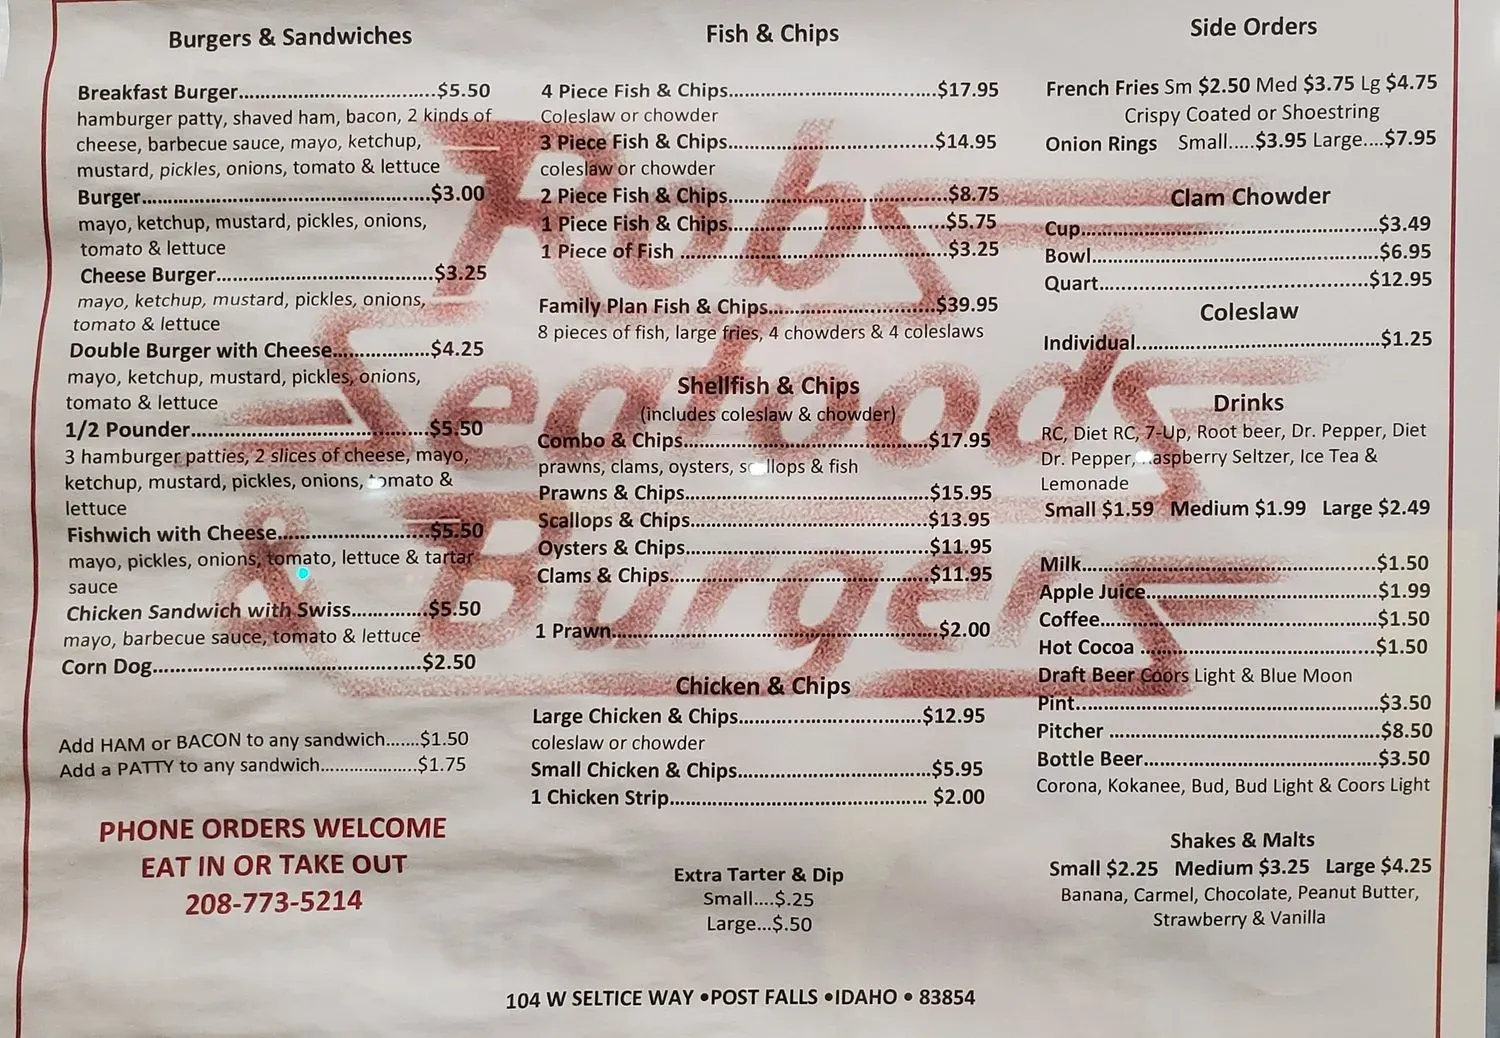 Burgers & Sandwiches
Breakfast Burger.....$5.50
hamburger patty, shaved ham, bacon, 2 kinds of
cheese, barbecue sauce, mayo, ketchup,
mustard, pickles, onions, tomato & lettuce
Burger.....$3.00
mayo, ketchup, mustard, pickles, onions,
tomato & lettuce
Cheese Burger.....$3.25
mayo, ketchup, mustard, pickles, onions,
tomato & lettuce
Double Burger with Cheese.....$4.25
mayo, ketchup, mustard, pickles, onions,
tomato & lettuce
1/2 Pounder.....$5.50
3 hamburger patties, 2 slices of cheese, mayo,
ketchup, mustard, pickles, onions, tomato &
lettuce
Fishwich with Cheese.....$5.50
mayo, pickles, onions, tomato, lettuce & tartar
sauce
Chicken Sandwich with Swiss.....$5.50
mayo, barbecue sauce, tomato & lettuce
Corn Dog.....$2.50
Add HAM or BACON to any sandwich.....$1.50
Add a PATTY to any sandwich.....$1.75
PHONE ORDERS WELCOME
EAT IN OR TAKE OUT
208-773-5214
Fish & Chips
4 Piece Fish & Chips.....$17.95
Coleslaw or chowder
3 Piece Fish & Chips.....$14.95
coleslaw or chowder
2 Piece Fish & Chips.....$8.75
1 Piece Fish & Chips.....$5.75
1 Piece of Fish .....$3.25
Family Plan Fish & Chips.....$39.95
8 pieces of fish, large fries, 4 chowders & 4 coleslaws
Shellfish & Chips
(includes coleslaw & chowder)
Combo & Chips.....$17.95
prawns, clams, oysters, scallops & fish
Prawns & Chips.....$15.95
Scallops & Chips.....$13.95
Oysters & Chips.....$11.95
Clams & Chips.....$11.95
1 Prawn.....$2.00
Chicken & Chips
Large Chicken & Chips.....$12.95
coleslaw or chowder
Small Chicken & Chips.....$5.95
1 Chicken Strip..... $2.00
Extra Tarter & Dip
Small....$.25
Large...$.50
Side Orders
French Fries Sm $2.50 Med $3.75 Lg $4.75
Crispy Coated or Shoestring
Onion Rings Small.....$3.95 Large....$7.95
Clam Chowder
Cup.....$3.49
Bowl.....$6.95
Quart.....$12.95
Coleslaw
Individual.....$1.25
Drinks
RC, Diet RC, 7-Up, Root beer, Dr. Pepper, Diet
Dr. Pepper, Raspberry Seltzer, Ice Tea &
Lemonade
Small $1.59 Medium $1.99 Large $2.49
Milk.....$1.50
Apple Juice.....$1.99
Coffee.....$1.50
Hot Cocoa .....$1.50
Draft Beer Coors Light & Blue Moon
Pint.....$3.50
Pitcher .....$8.50
Bottle Beer.....$3.50
Corona, Kokanee, Bud, Bud Light & Coors Light
Shakes & Malts
Small $2.25 Medium $3.25 Large $4.25
Banana, Carmel, Chocolate, Peanut Butter,
Strawberry & Vanilla
Robs
Seafoods
& Burgers
104 W SELTICE WAY •POST FALLS •IDAHO • 83854